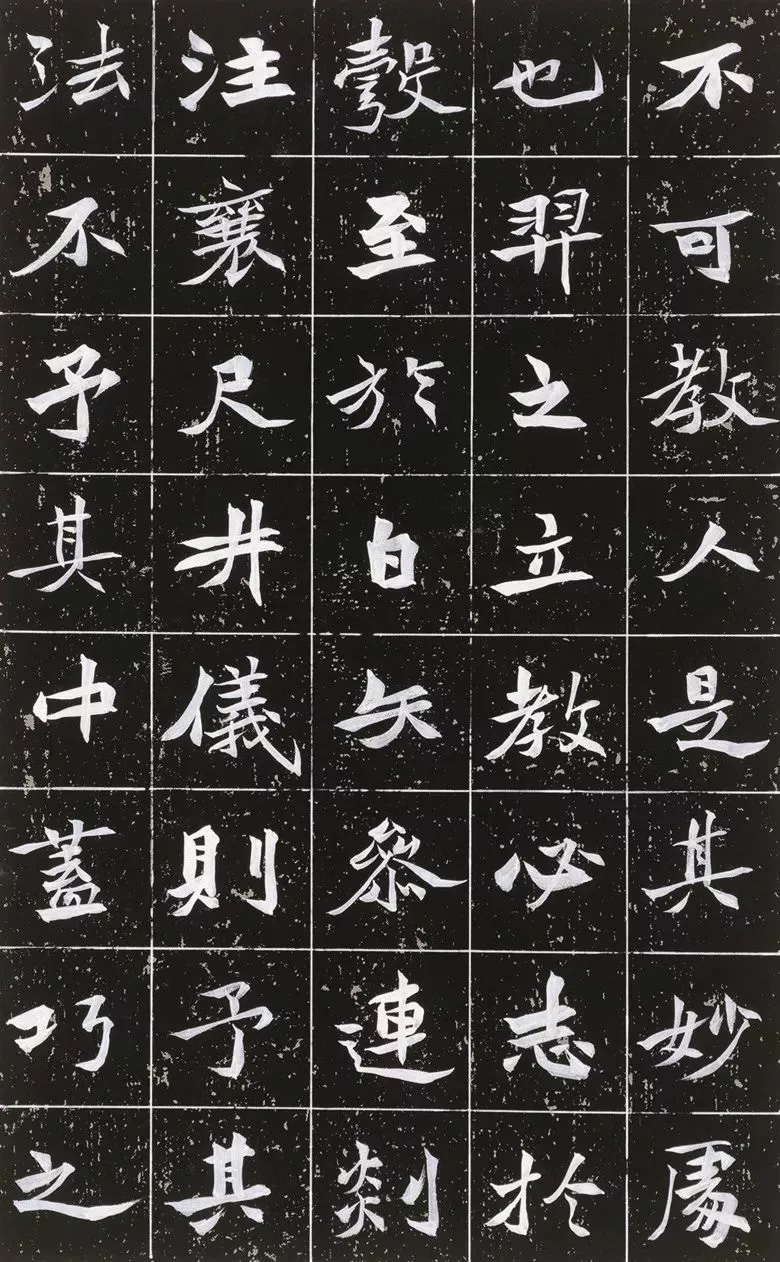 不可教人是其妙處
也羿之立教必志於
彀至於白矢參連剡
注襄尺井儀則予其
法不予其中蓋巧之